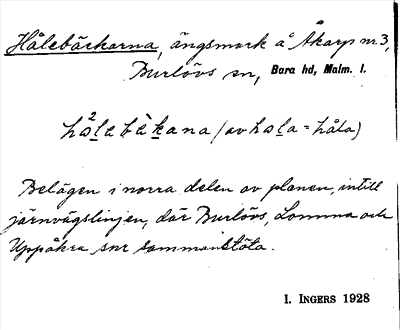 Hålebäckarna, ängsmark å Åkarp nr 3,
Burlövs sn, Bara hd, Malm. l.
hɑ²lebèkana (av hɑla = håla)
Belägen i norra delen av planen, intill
järnvägslinjen, där Burlövs, Lomma och
Uppåkra snr sammanstöta.
I. INGERS 1928